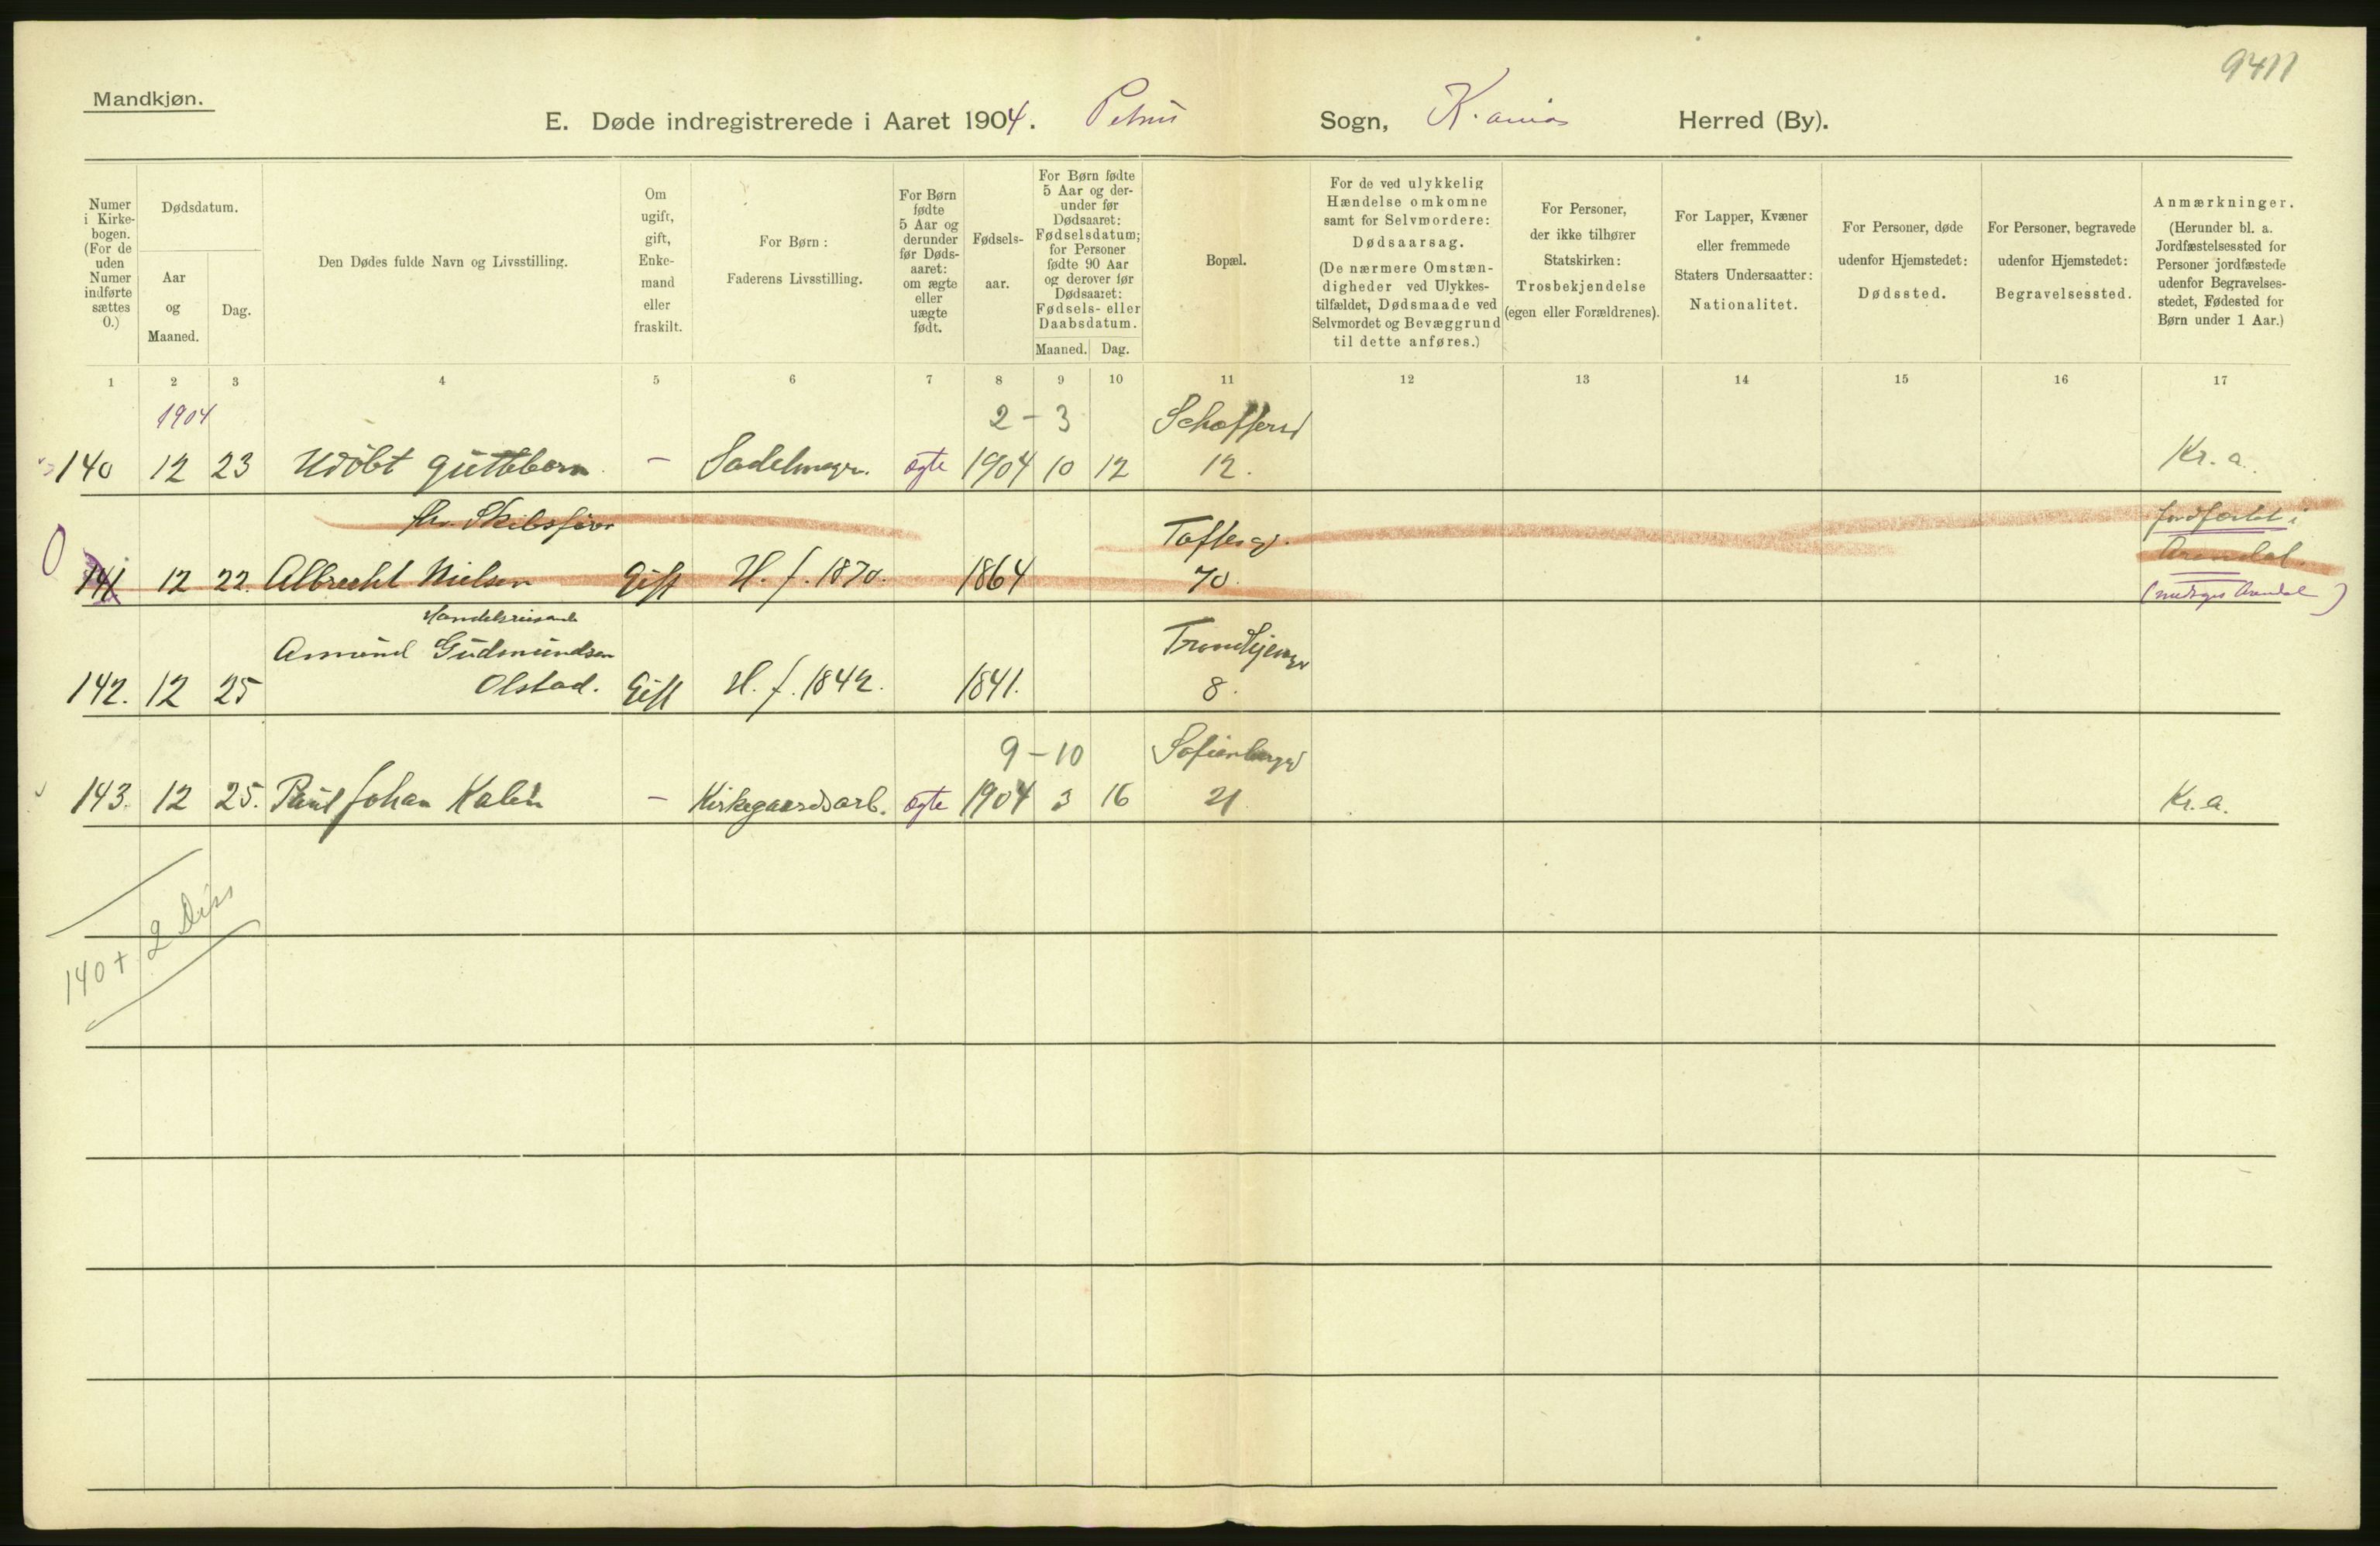 9411
Mandkjøn.
E. Døde indregistrerede i Aaret 1904. Petrus Sogn, K.ania Herred (By).
Numer i Kirkebogen. (For de uden Numer indførte sættes 0.)
Dødsdatum.
Aar og Maaned.
Dag.
Den Dødes fulde Navn og Livsstilling.
Om ugift, gift, Enkemand eller fraskilt.
For Børn: Faderens Livsstilling.
For Børn fødte 5 Aar og derunder før Dødsaaret: om ægte eller uægte født.
Fødselsaar.
For Børn fødte 5 Aar og derunder før Dødsaaret: Fødselsdatum; for Personer fødte 90 Aar og derover før Dødsaaret: Fødsels- eller Daabsdatum.
Maaned. Dag.
Bopæl.
For de ved ulykkelig Hændelse omkomne samt for Selvmordere: Dødsaarsag. (De nærmere Omstændigheder ved Ulykkestilfældet, Dødsmaade ved Selvmordet og Bevæggrund til dette anføres.)
For Personer, der ikke tilhører Statskirken: Trosbekjendelse (egen eller Forældrenes).
For Lapper, Kvæner eller fremmede Staters Undersaatter: Nationalitet.
For Personer, døde udenfor Hjemstedet: Dødssted.
For Personer, begravede udenfor Hjemstedet: Begravelsessted.
Anmærkninger. (Herunder bl. a. Jordfæstelsessted for Personer jordfæstede udenfor Begravelsesstedet, Fødested for Børn under 1 Aar.)
1 2 3 4 5 6 7 8 9 10 11 12 13 14 15 16 17
1904 2 - 3 Schaffersd
140 12 23 Udöbt guttebarn. - Sadelmagr. ægte 1904 10 12 12. Kr. a.
fhv. Skibsfører Toftesgd. Jordfæstet i
141 12 22. Albrecht Nielsen Gift H. f. 1870. 1864 70. Arendal.
Handelsreisende (medregnes Arendal)
Amund Gudmundsen Trondhjemsgd
142. 12 25 Olstad. Gift H. f. 1842. 1841. 8.
9 - 10 Sofienberggd
143. 12 25. Paul Johan Kalin - Kirkegaardsarb. ægte 1904 3 16 21 Kr. a.
140 + 2 Diss